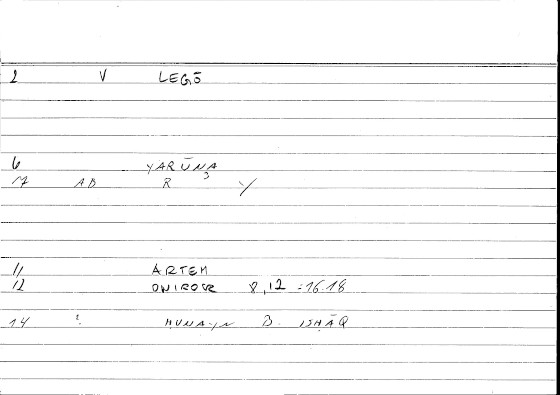 2 V LEGŌ
6 YARŪNA
17 AB R Y
11 ARTEM
12 ONIROCR 8,12 = 16.18
14 : ḤUNAYN B. ISḤĀQ